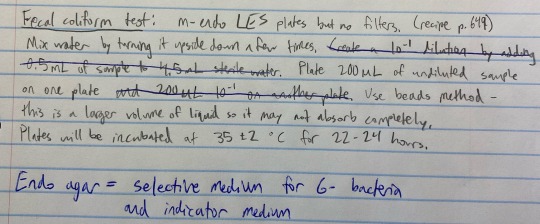 Fecal coliform test: m-endo LES plates but no filters. (recipe p.649)
Mix water by turning it upside down a few times. Create a 10⁻¹ dilution by adding
0.5mL of sample to 4.5mL sterile water. Plate 200uL of undiluted sample
on one plate and 200uL 10⁻¹ on another plate. Use beads method -
this is a larger volume of liquid so it may not absorb completely.
Plates will be incubated at 35 ±2 °C for 22-24 hours.
Endo agar = selective medium for G- bacteria
and indicator medium